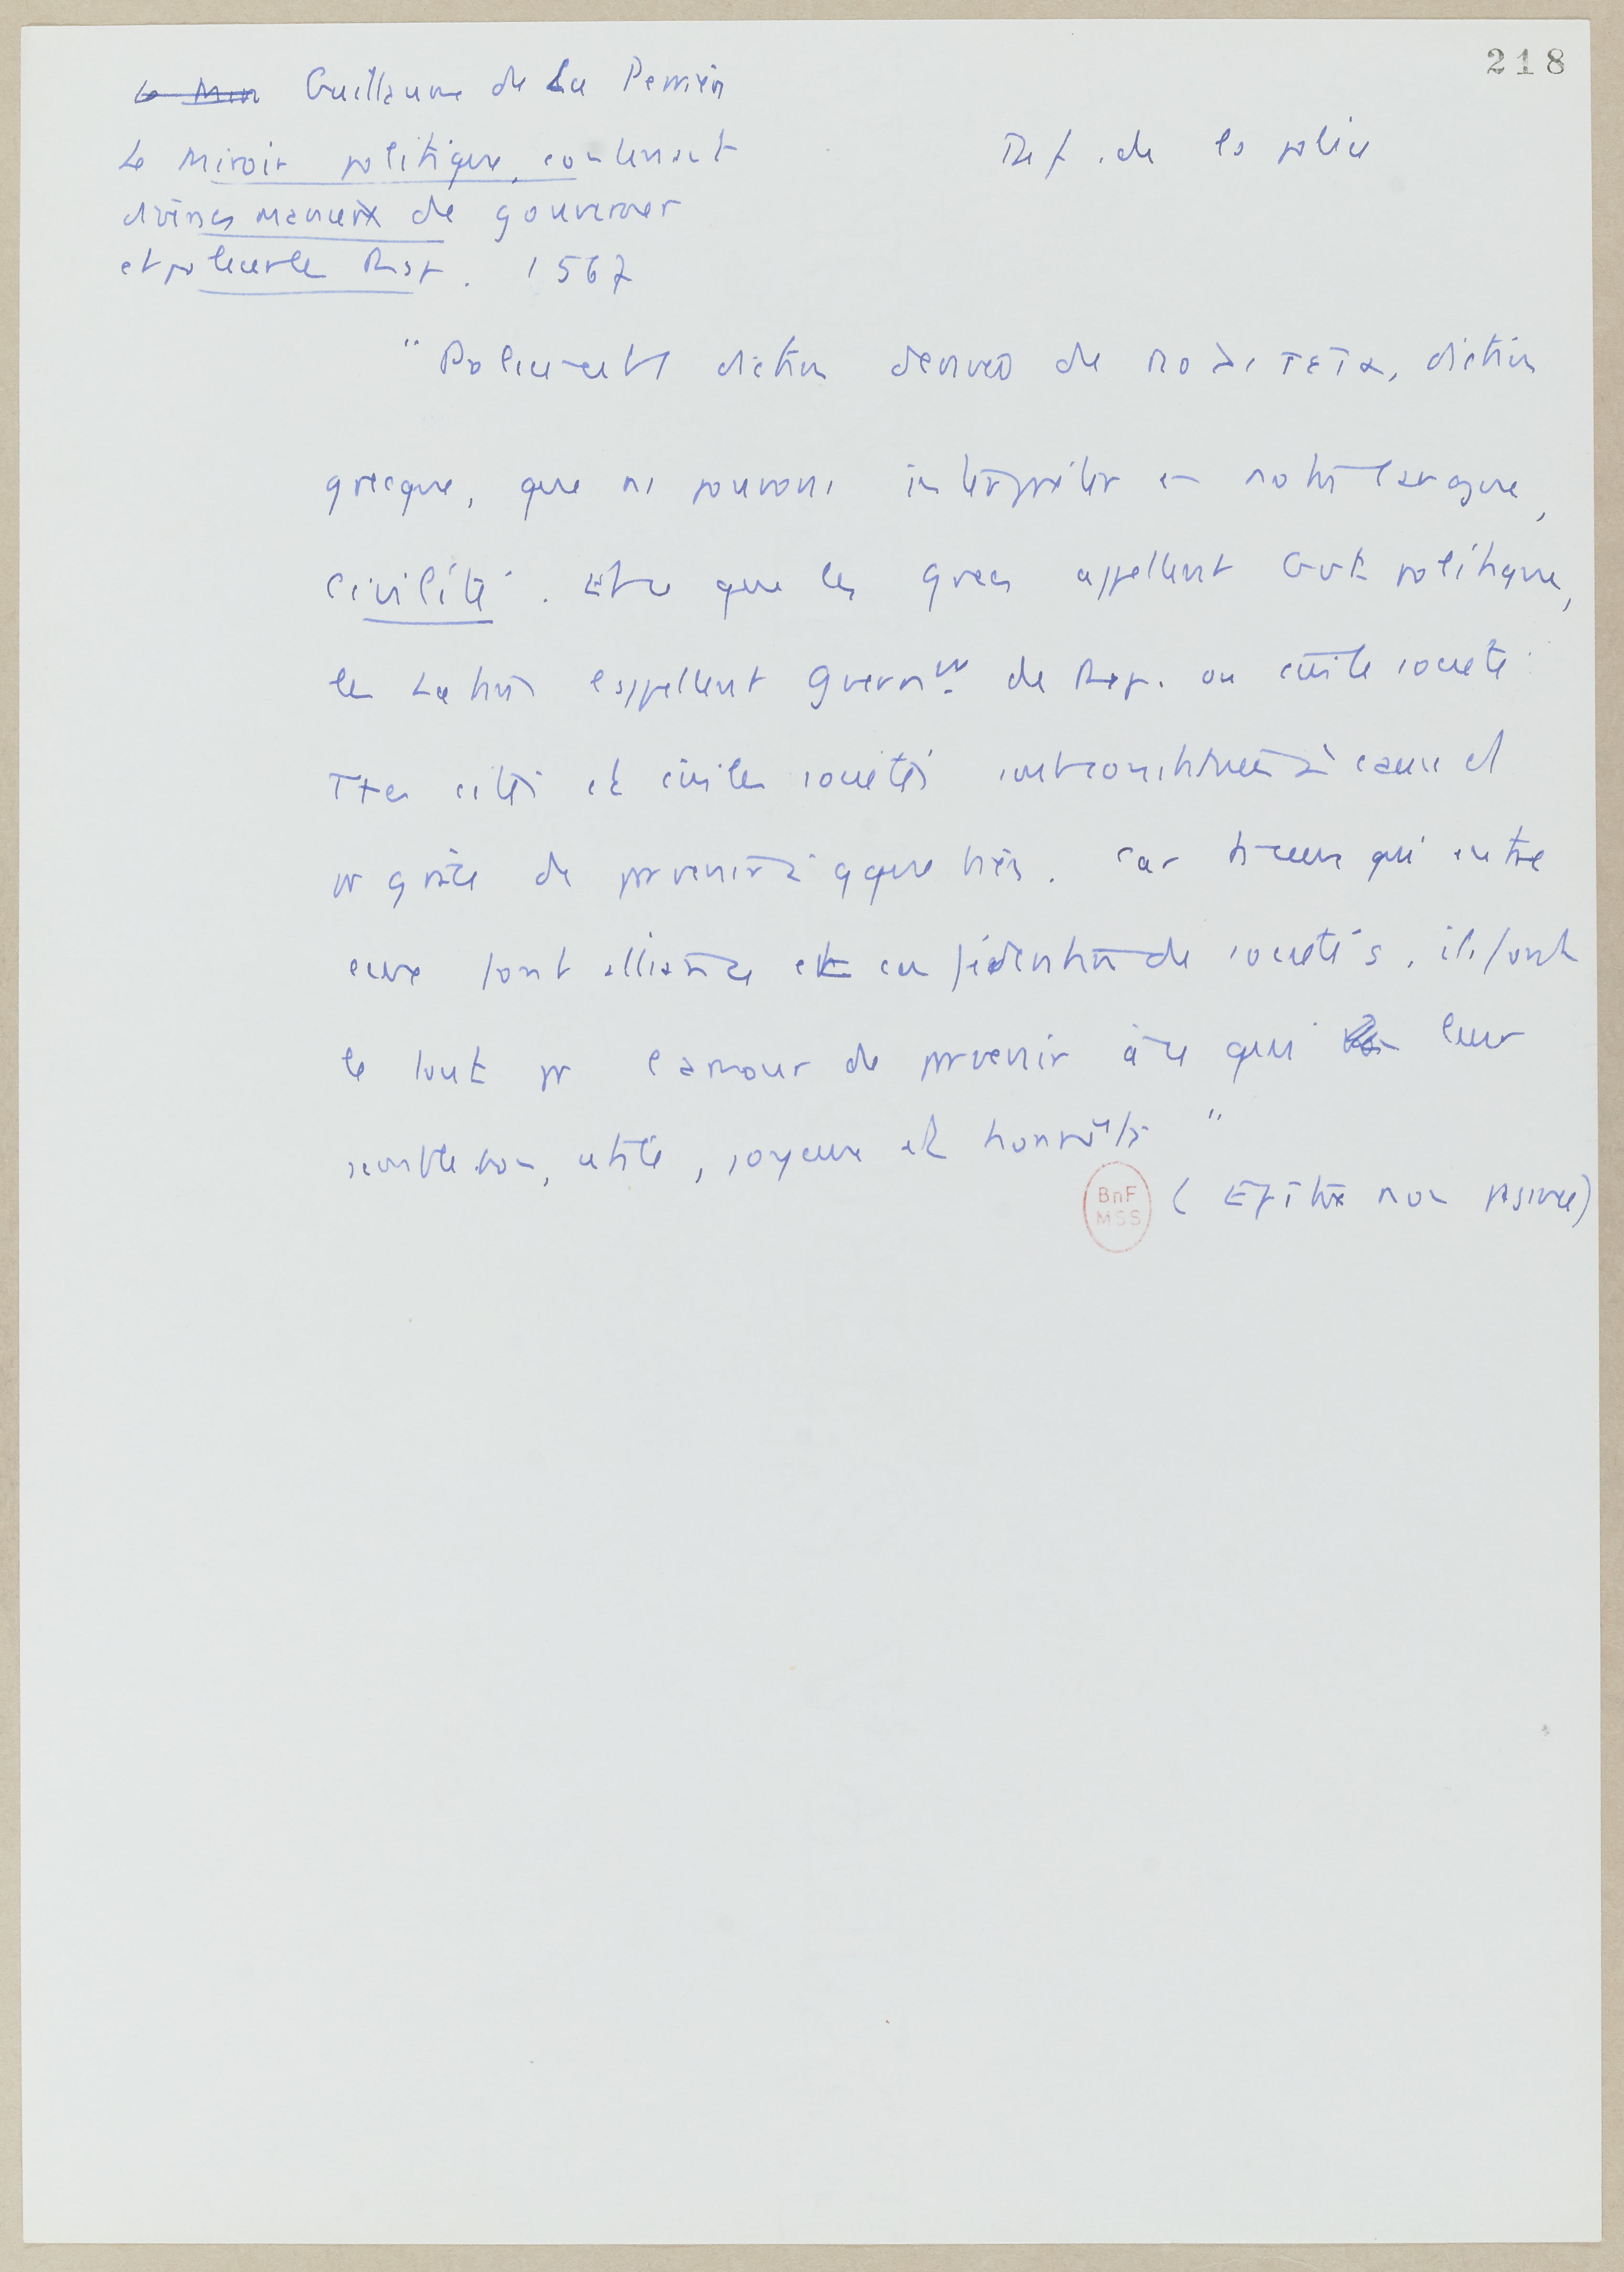 218
Le Mir Guillaume de La Perrière
Le Miroir politique, contenant
diverses manieres de gouverner
et policer les Rsp. 1567
Def. de la police
" Policie est diction derivée de πολιτεια, diction
grecque, que ns pouvons interpréter en notre langue,
civilité. Et ce que les grecs appellent Gvt politique,
les Latins l'appellent Gvernnt de Rep. ou civile société.
Ttes cités et civiles sociétés sont constituées à cause et
pr grâce de parvenir à qque bien. Car tt ceux qui entre
eux font alliance et confédération de sociétés, ils font
le tout pr l'amour de parvenir à ce qui leur
semble bon, utile, joyeux et honneste "
( Epitre non paginée)
BnF
MSS